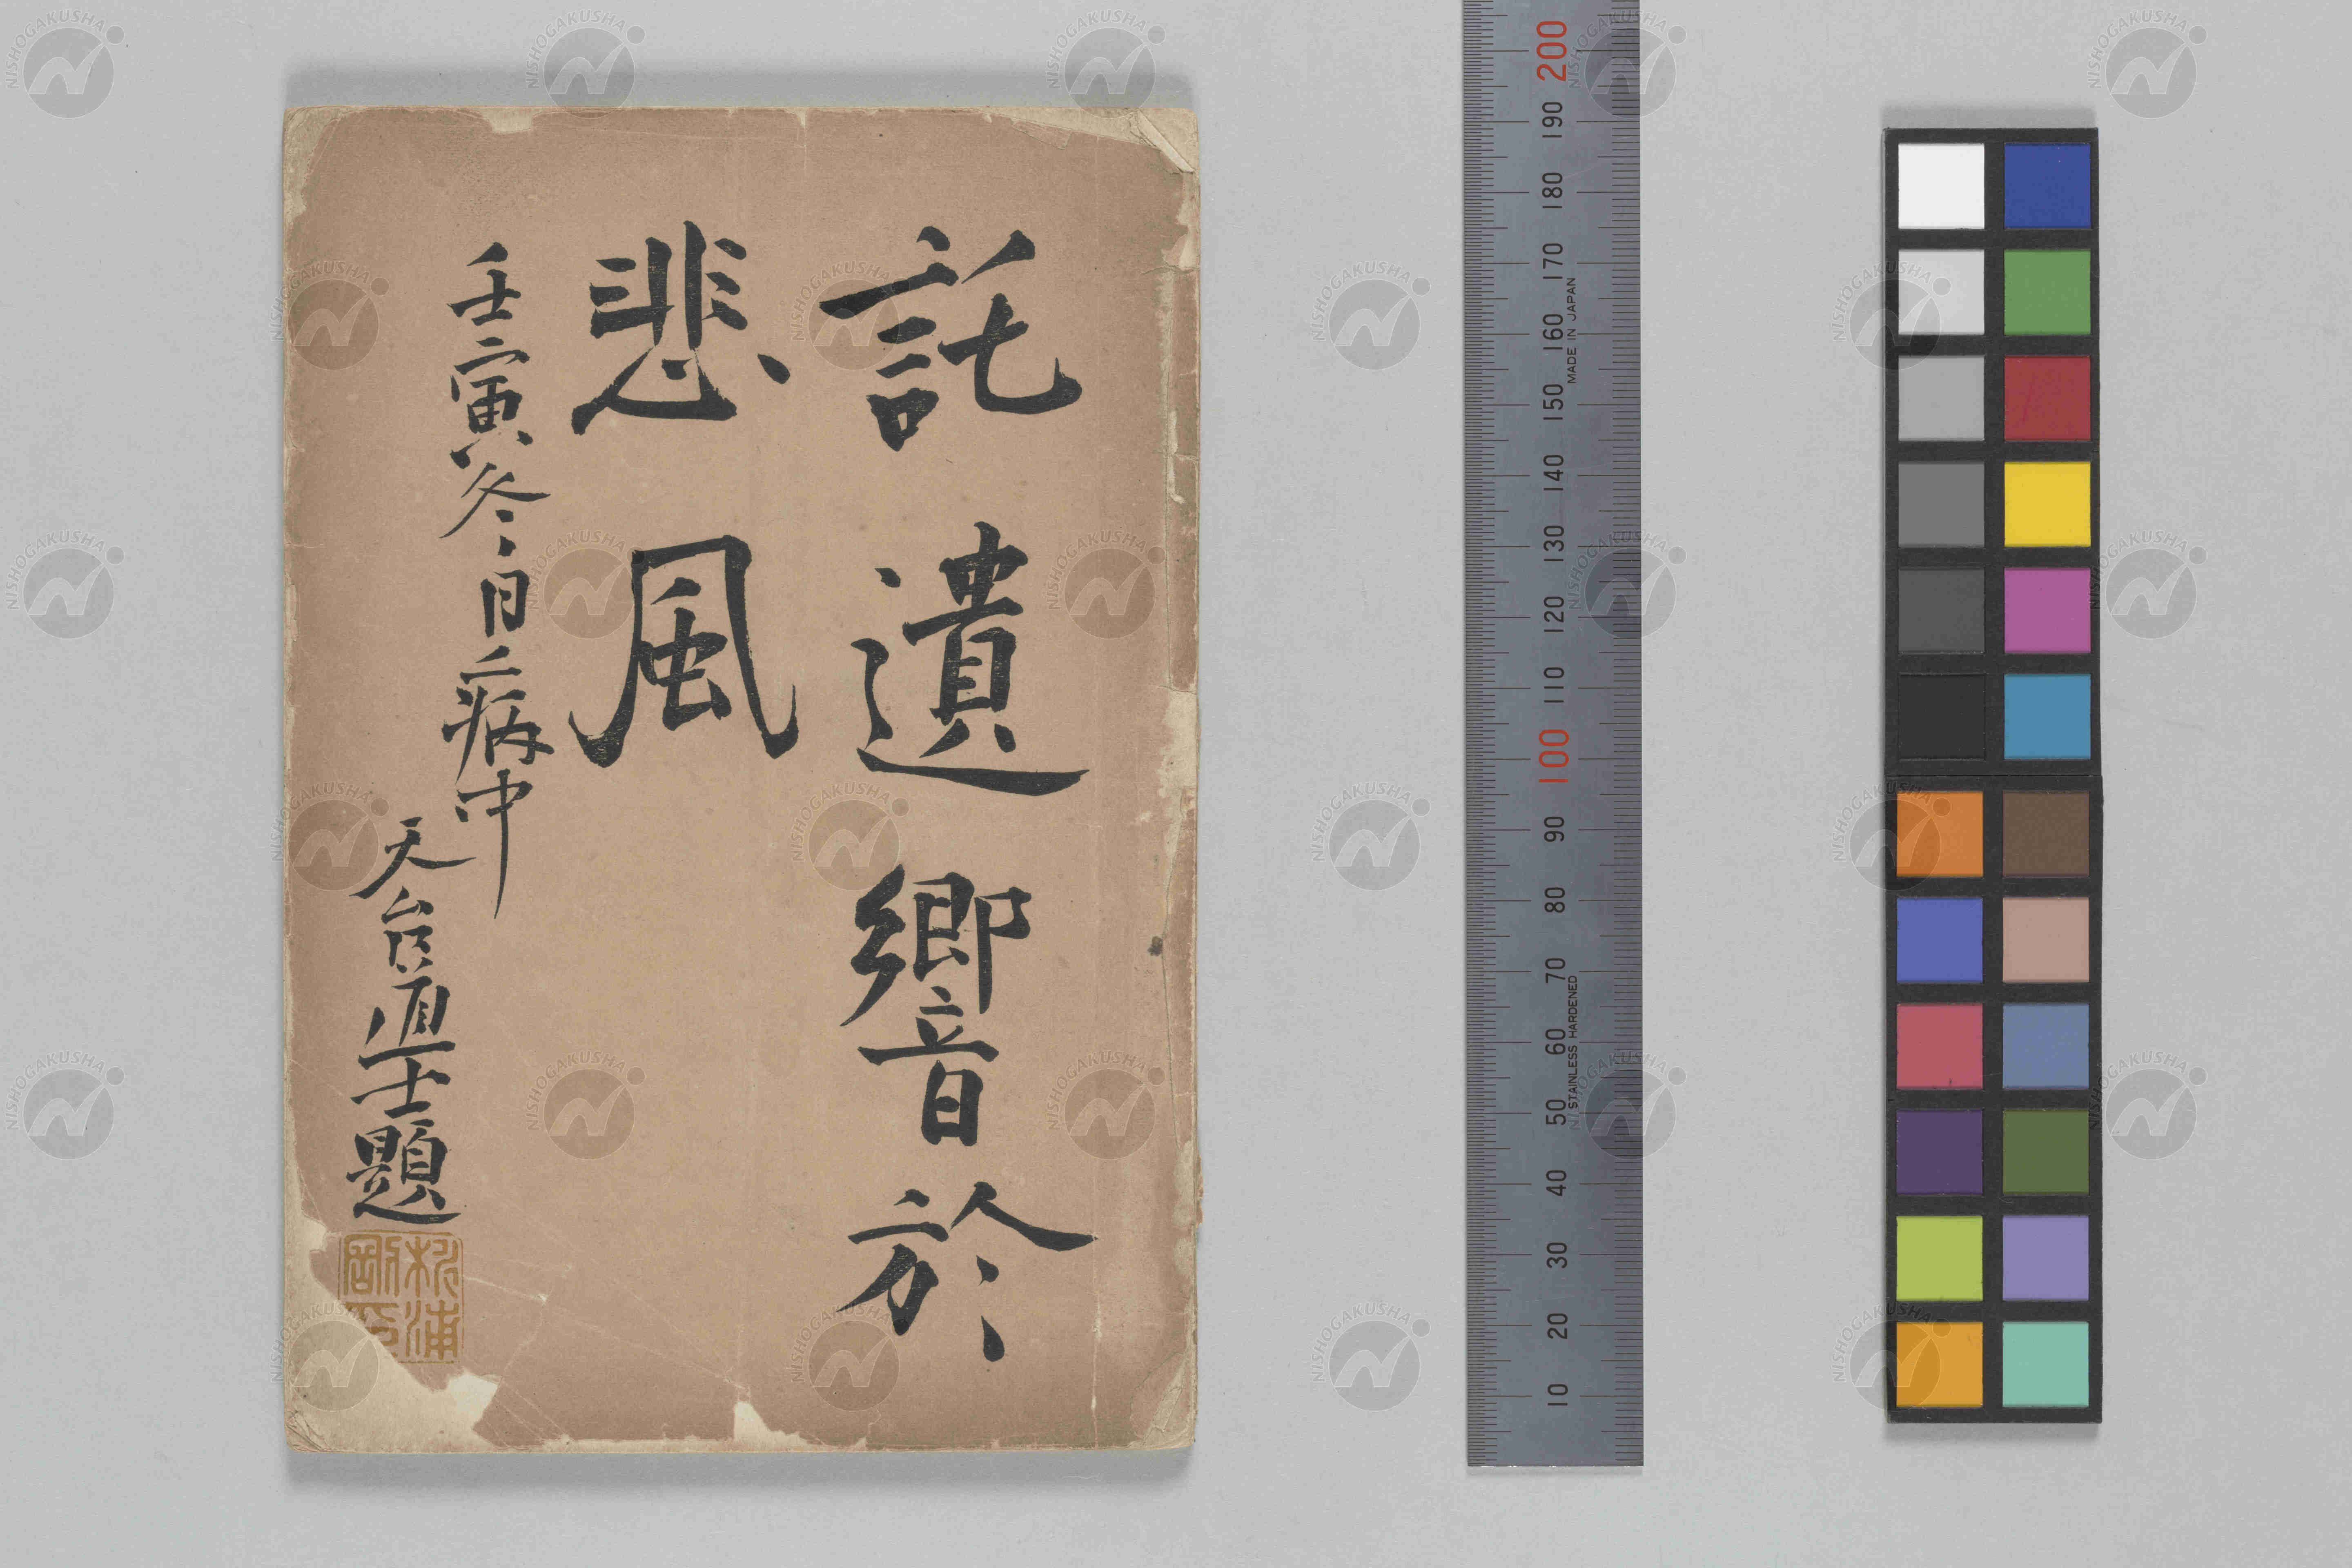 託遺響於
悲風
壬寅冬日病中
天台道士題
松浦
剛
200
190
180
170
160
150
140
130
120
110
100
90
80
70
60
50
40
30
20
10
MADE IN JAPAN
STAINLESS HARDENED
NISHOGAKUSHA